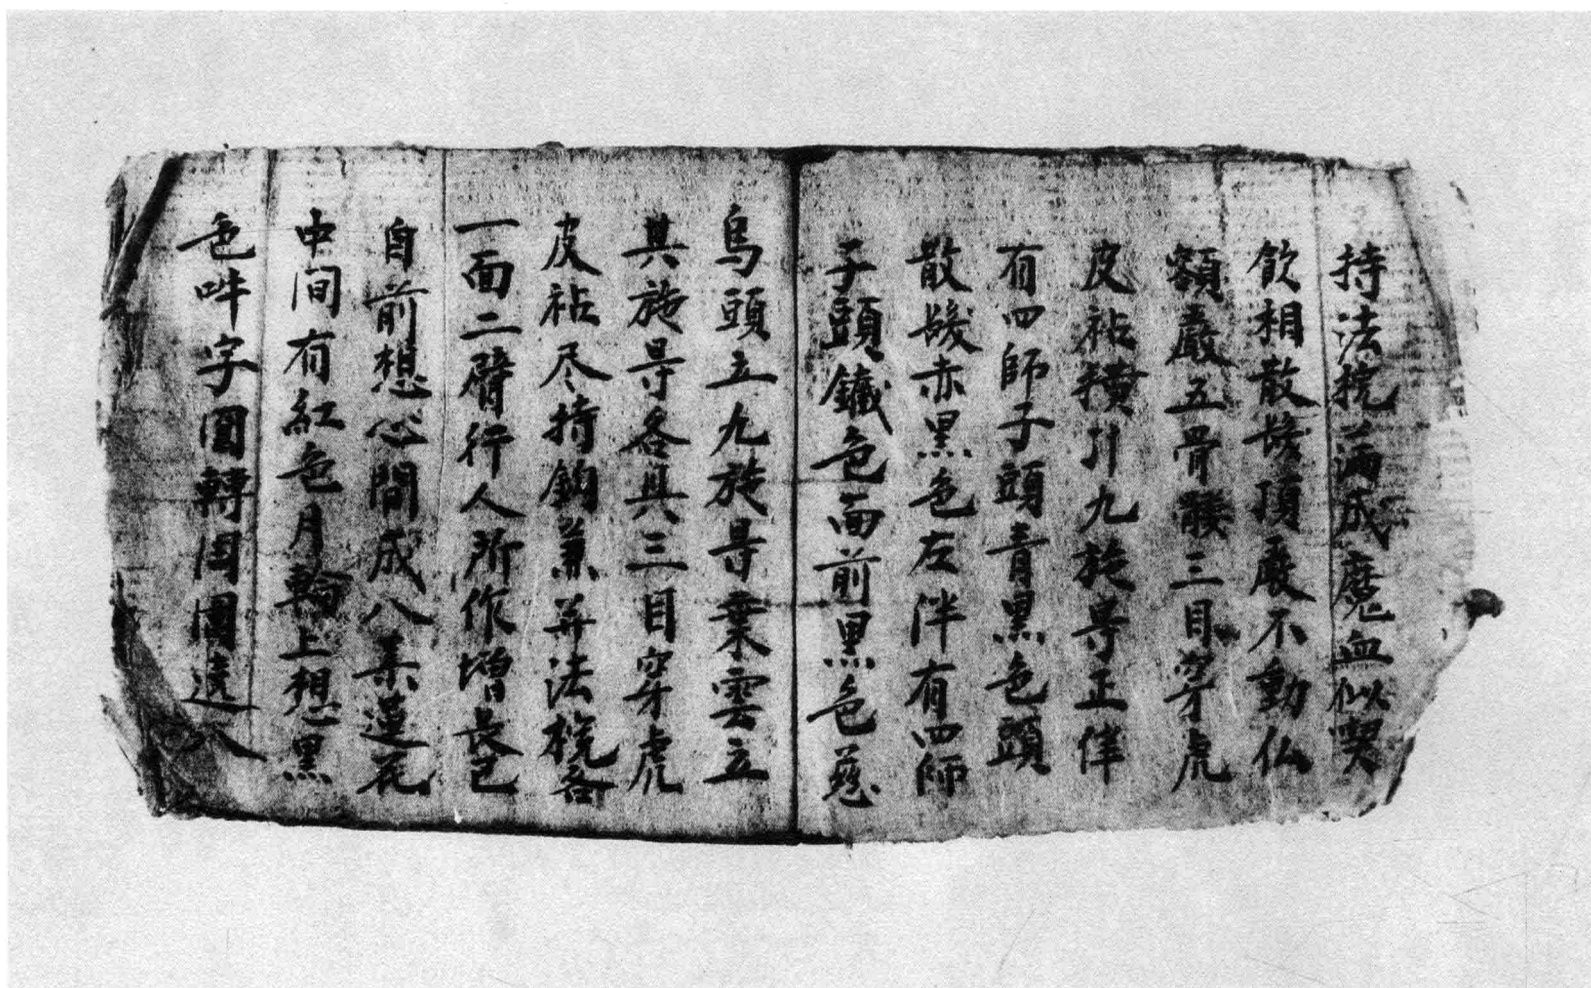 持法梡滿成魔血似喫
飲相散髮頂嚴不動仏
額嚴五骨髏三目穿虎
皮袩積引九旋㝵正伴
有四師子頭青黑色頭
散髮赤黑色左泮有四師
子頭鐵色面前黑色慈
烏頭立九旋㝵乗雲立
其旋㝵各具三目穿虎
皮袩尽持鈎兼并法梡各
一面二臂行人所作增長已
自前想心間成八葉蓮花
中间有紅色月輪上想黑
色吽字圓轉周圍遶八